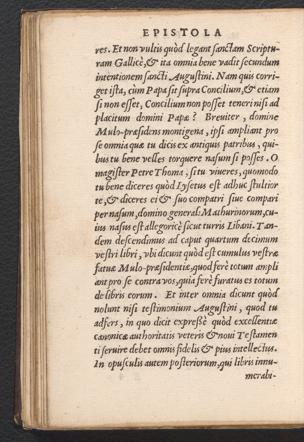 EPISTOLA
res. Et non vultis quòd legant sanctam Scriptu-
ram Gallicè, & ita omnia bene vadit secundum
intentionem sancti Augustini. Nam quis corri-
get ista, cùm Papa sit supra Concilium, & etiam
si non esset, Concilium non posset teneri nisi ad
placitum domini Papæ? Breviter, domine
Mulo-præsidens montigena, ipsi ampliant pro
se omnia quæ tu dicis ex antiquis patribus, qui-
bus tu bene velles torquere nasum si posses. O
magister Petre Thoma, si tu viveres, quomodo
tu bene diceres quòd Lysetus est adhuc stultior
te, & diceres ei & suo compatri siue compari
per nasum, domino generali Mathurinorum, cu-
ius nasus est allegoricè sicut turris Libani. Tan-
dem descendimus ad caput quartum decimum
vestri libri, vbi dicunt quòd est cumulus vestræ
fatuæ Mulo-præsidentiæ, quod ferè totum ampli
ant pro se contra vos, quia ferè furatus es totum
de libris eorum. Et inter omnia dicunt quòd
nolunt nisi testimonium Augustini, quod tu
adfers, in quo dicit expreßè quòd excellentiæ
canonicæ authoritatis veteris & noui Testamen
ti seruire debet omnis fidelis & pius intellectus.
In opusculis autem posteriorum, qui libris innu-
merabi-